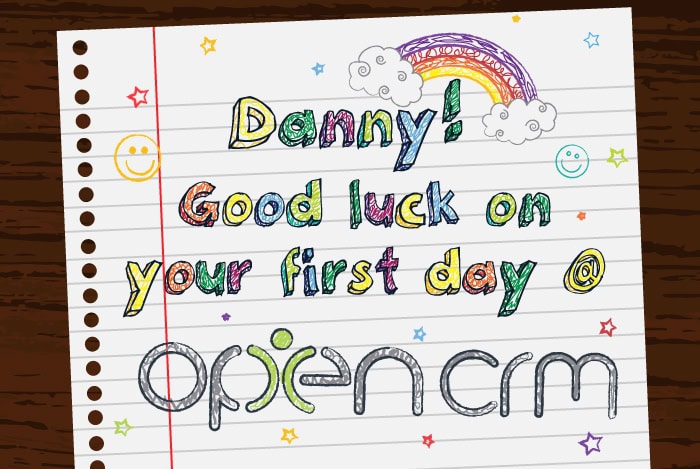 Danny!
Good luck on
your first day @
opencrm